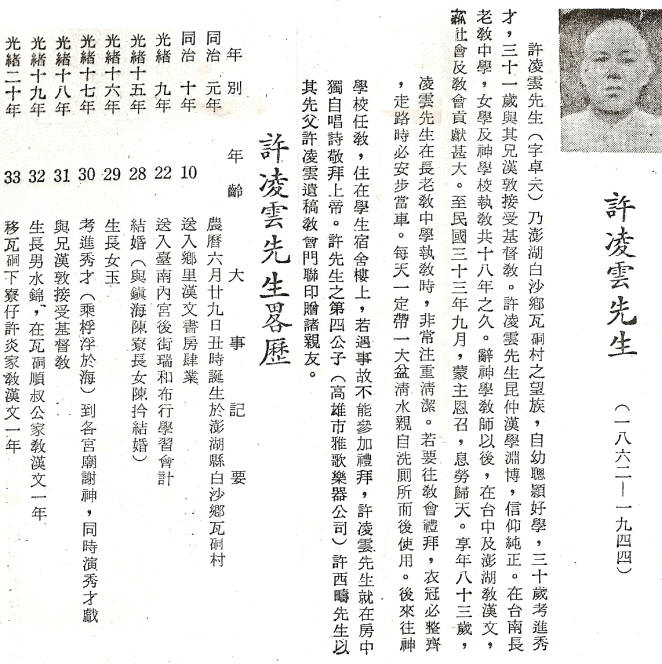 許凌雲先生
（一八六二—一九四四）
許凌雲先生（字卓夫）乃澎湖白沙鄉瓦硐村之望族，自幼聰穎好學，三十歲考進秀
才，三十一歲與其兄漢敦接受基督教。許凌雲先生昆仲漢學淵博，信仰純正。在台南長
老教中學，女學及神學校執教共十八年之久。辭神學教師以後，在台中及澎湖教漢文，
社會及教會貢獻甚大。至民國三十三年九月，蒙主恩召，息勞歸天。享年八十三歲，
凌雲先生在長老教中學執教時，非常注重清潔。若要往教會禮拜，衣冠必整齊
，走路時必安步當車。每天一定帶一大盆清水親自洗厠所而後使用。後來往神
學校任教，住在學生宿舍樓上，若遇事故不能參加禮拜，許凌雲先生就在房中
獨自唱詩敬拜上帝。許先生之第四公子（高雄市雅歌樂器公司）許西疇先生以
其先父許凌雲遺稿教會門聯印贈諸親友。
許凌雲先生畧歷
年別 年齡 大事記要
同治元年 農曆六月廿九日丑時誕生於澎湖縣白沙鄉瓦硐村
同治十年 10 送入鄉里漢文書房肆業
光緒九年 22 送入臺南內宮後街瑞和布行學習會計
光緒十五年 28 結婚（與鎮海陳寮長女陳拎結婚）
光緒十六年 29 生長女玉
光緒十七年 30 考進秀才（乘桴浮於海）到各宮廟謝神，同時演秀才戲
光緒十八年 31 與兄漢敦接受基督教
光緒十九年 32 生長男水錦，在瓦硐順叔公家教漢文一年
光緒二十年 33 移瓦硐下寮仔許炎家教漢文一年